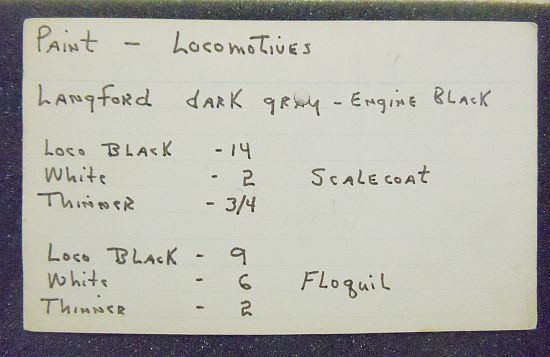 Paint - Locomotives
Langford dark gray - Engine Black
Loco Black - 14
White - 2 Scalecoat
Thinner - 3/4
Loco Black - 9
White - 6 Floquil
Thinner - 2